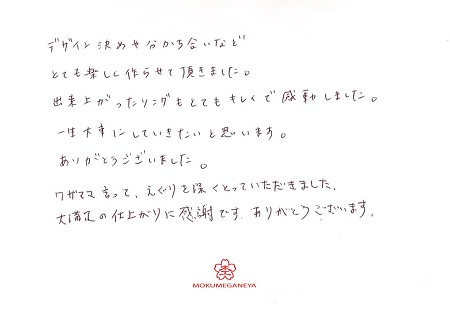 デザイン決めや分かち合いなど
とても楽しく作らせて頂きました。
出来上がったリングもとてもキレイで感動しました。
一生大事にしていきたいと思います。
ありがとうございました。
ワガママ言って、えぐりを深くとっていただきました。
大満足の仕上がりに感謝です。ありがとうございます。
MOKUMEGANEYA